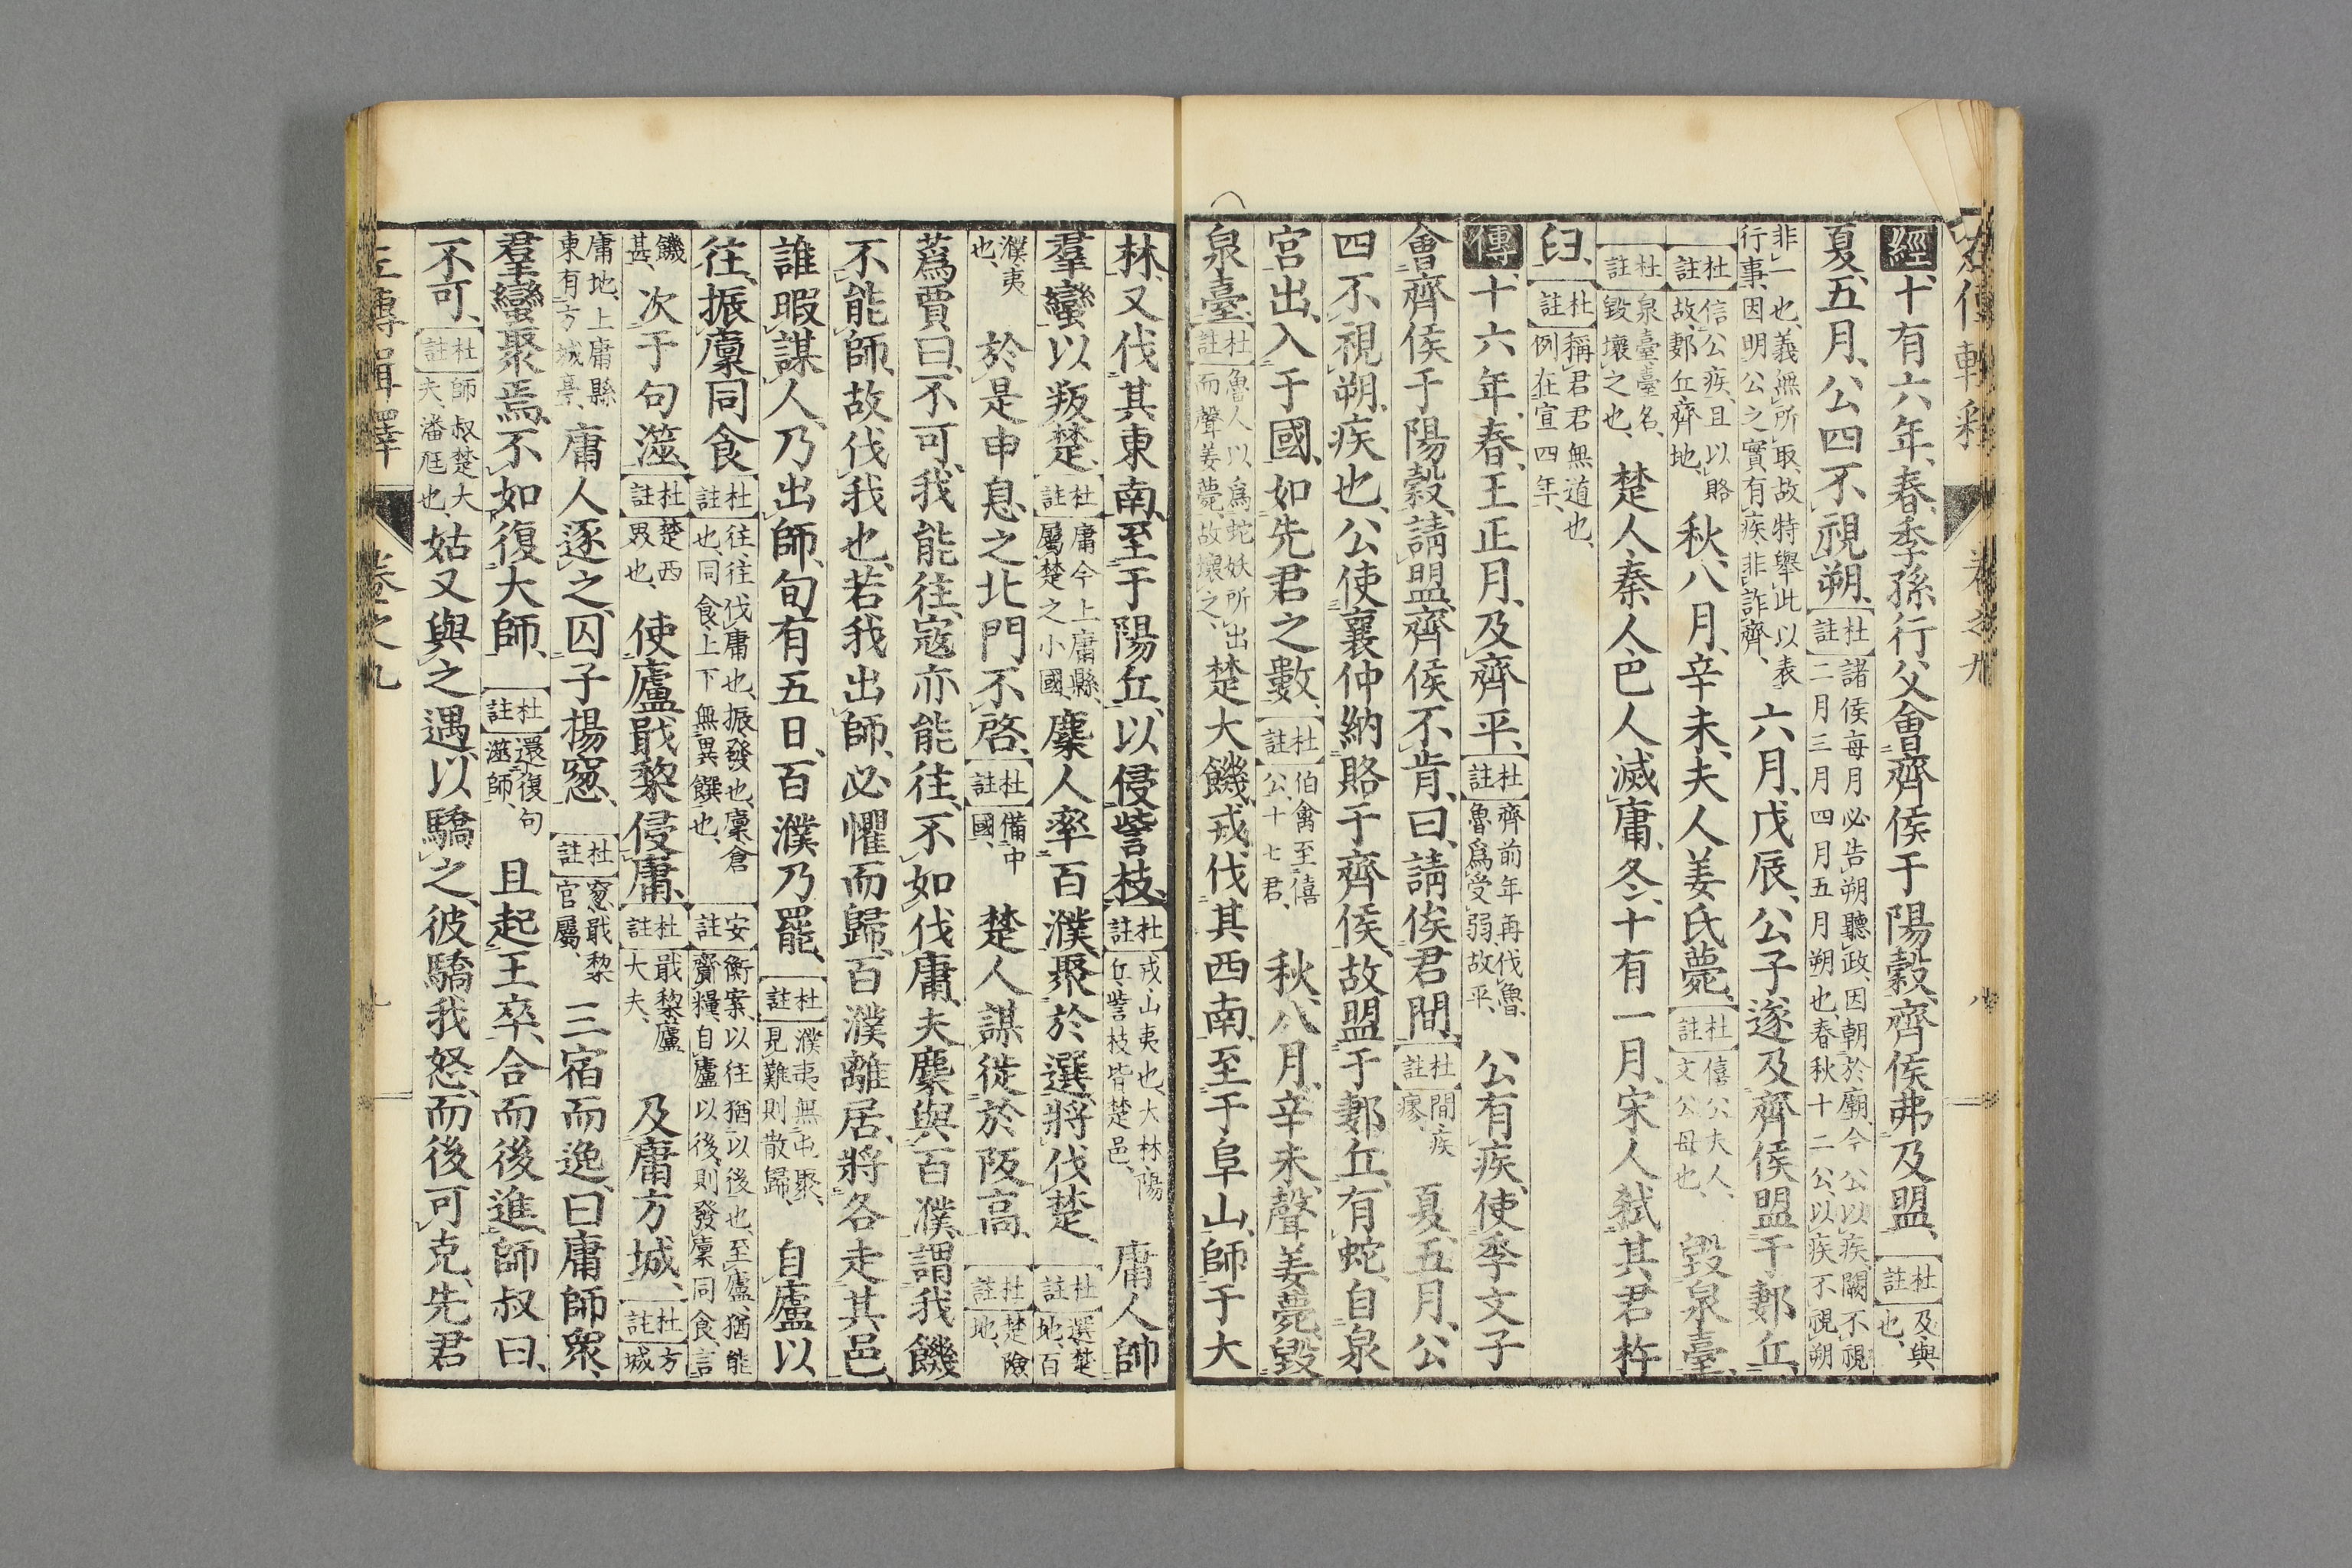 左傳輯釋 卷之九 八
經、十有六年、春、季孫行父會齊侯于陽穀、齊侯弗及盟、杜註及、與也、
夏、五月、公四不視朔、杜註諸侯每月必告朔聽政、因朝於廟、今公以疾闕不視二月三月四月五月朔也、春秋十二公、以疾不視朔
非一也、義無所取、故特舉此以表行事、因明公之實有疾、非詐齊、六月、戊辰、公子遂及齊侯盟于郪丘、
杜註信公疾、且以賂故、郪丘齊地、秋、八月、辛未、夫人姜氏薨、杜註僖公夫人、文公母也、毀泉臺、
杜註泉臺、臺名、毀壞之也、楚人、秦人、巴人滅庸、冬、十有一月、宋人弒其君杵
臼、杜註稱君君無道也、例在宣四年、
傳、十六年、春、王正月、及齊平、杜註齊前年再伐魯、魯爲受弱、故平、公有疾、使季文子
會齊侯于陽穀、請盟、齊侯不肯、曰、請俟君間、杜註間、疾瘳、夏、五月、公
四不視朔、疾也、公使襄仲納賂于齊侯、故盟于郪丘、有蛇、自泉
宮出、入于國、如先君之數、杜註伯禽至僖公、十七君、秋、八月、辛未、聲姜薨、毀
泉臺、杜註魯人以爲蛇妖所出、而聲姜薨、故壞之、楚大饑、戎伐其西南、至于阜山、師于大
林、又伐其東南、至于陽丘、以侵訾枝、杜註戎、山夷也、大林陽丘訾枝皆楚邑、庸人帥
羣蠻以叛楚、杜註庸今上庸縣、屬楚之小國、麇人率百濮聚於選、將伐楚、杜註選、楚地、百
濮夷也、於是申息之北門不啓、杜註備中國、楚人謀徙於阪高、杜註楚險地、
蔿賈曰、不可、我能往、寇亦能往、不如伐庸、夫麇與百濮、謂我饑
不能師、故伐我也、若我出師、必懼而歸、百濮離居、將各走其邑、
誰暇謀人、乃出師、旬有五日、百濮乃罷、杜註濮夷無屯聚、見難則散歸、自廬以
往、振廩同食、杜註往、往伐庸也、振、發也、廩、倉也、同食、上下無異饌也、安註衡案、以往猶以後也、至廬、猶能齎糧、自廬以後、則發廩同食、言
饑甚、次于句澨、杜註楚西界也、使廬戢黎侵庸、杜註戢黎、廬大夫、及庸方城、杜註方城
庸地、上庸縣東有方城亭、庸人逐之、囚子揚窻、杜註窻、戢黎官屬、三宿而逸、曰、庸師衆、
羣蠻聚焉、不如復大師、杜註還復句澨師、且起王卒、合而後進、師叔曰、
不可、杜註師叔、楚大夫潘尫也、姑又與之遇、以驕之、彼驕我怒、而後可克、先君
左傳輯釋 卷之九